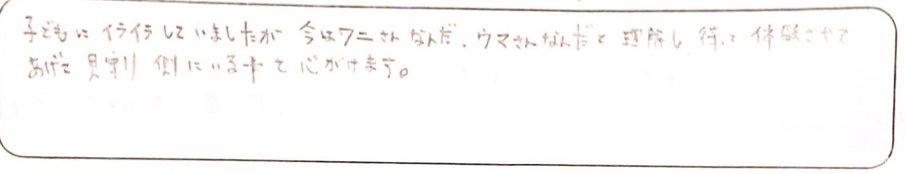 子どもに イライラしていましたが 今はワニさんなんだ、ウマさんなんだと 理解し 待って 体験させて
あげて 見守り 側にいる事を心がけます。